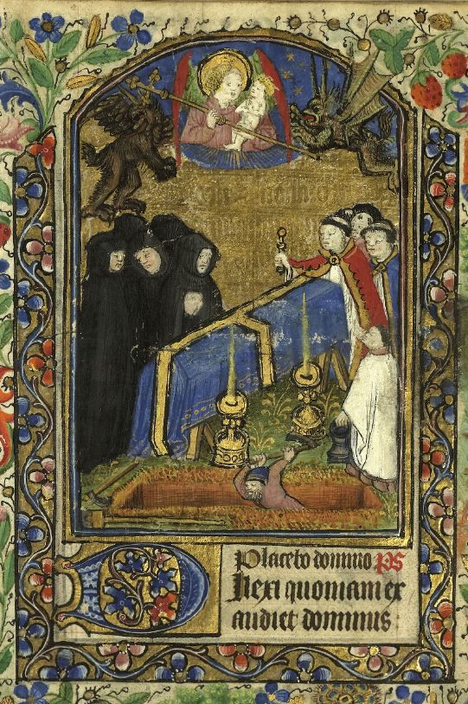 Placebo domino ps
Dilexi quoniam ex
audiet dominus: